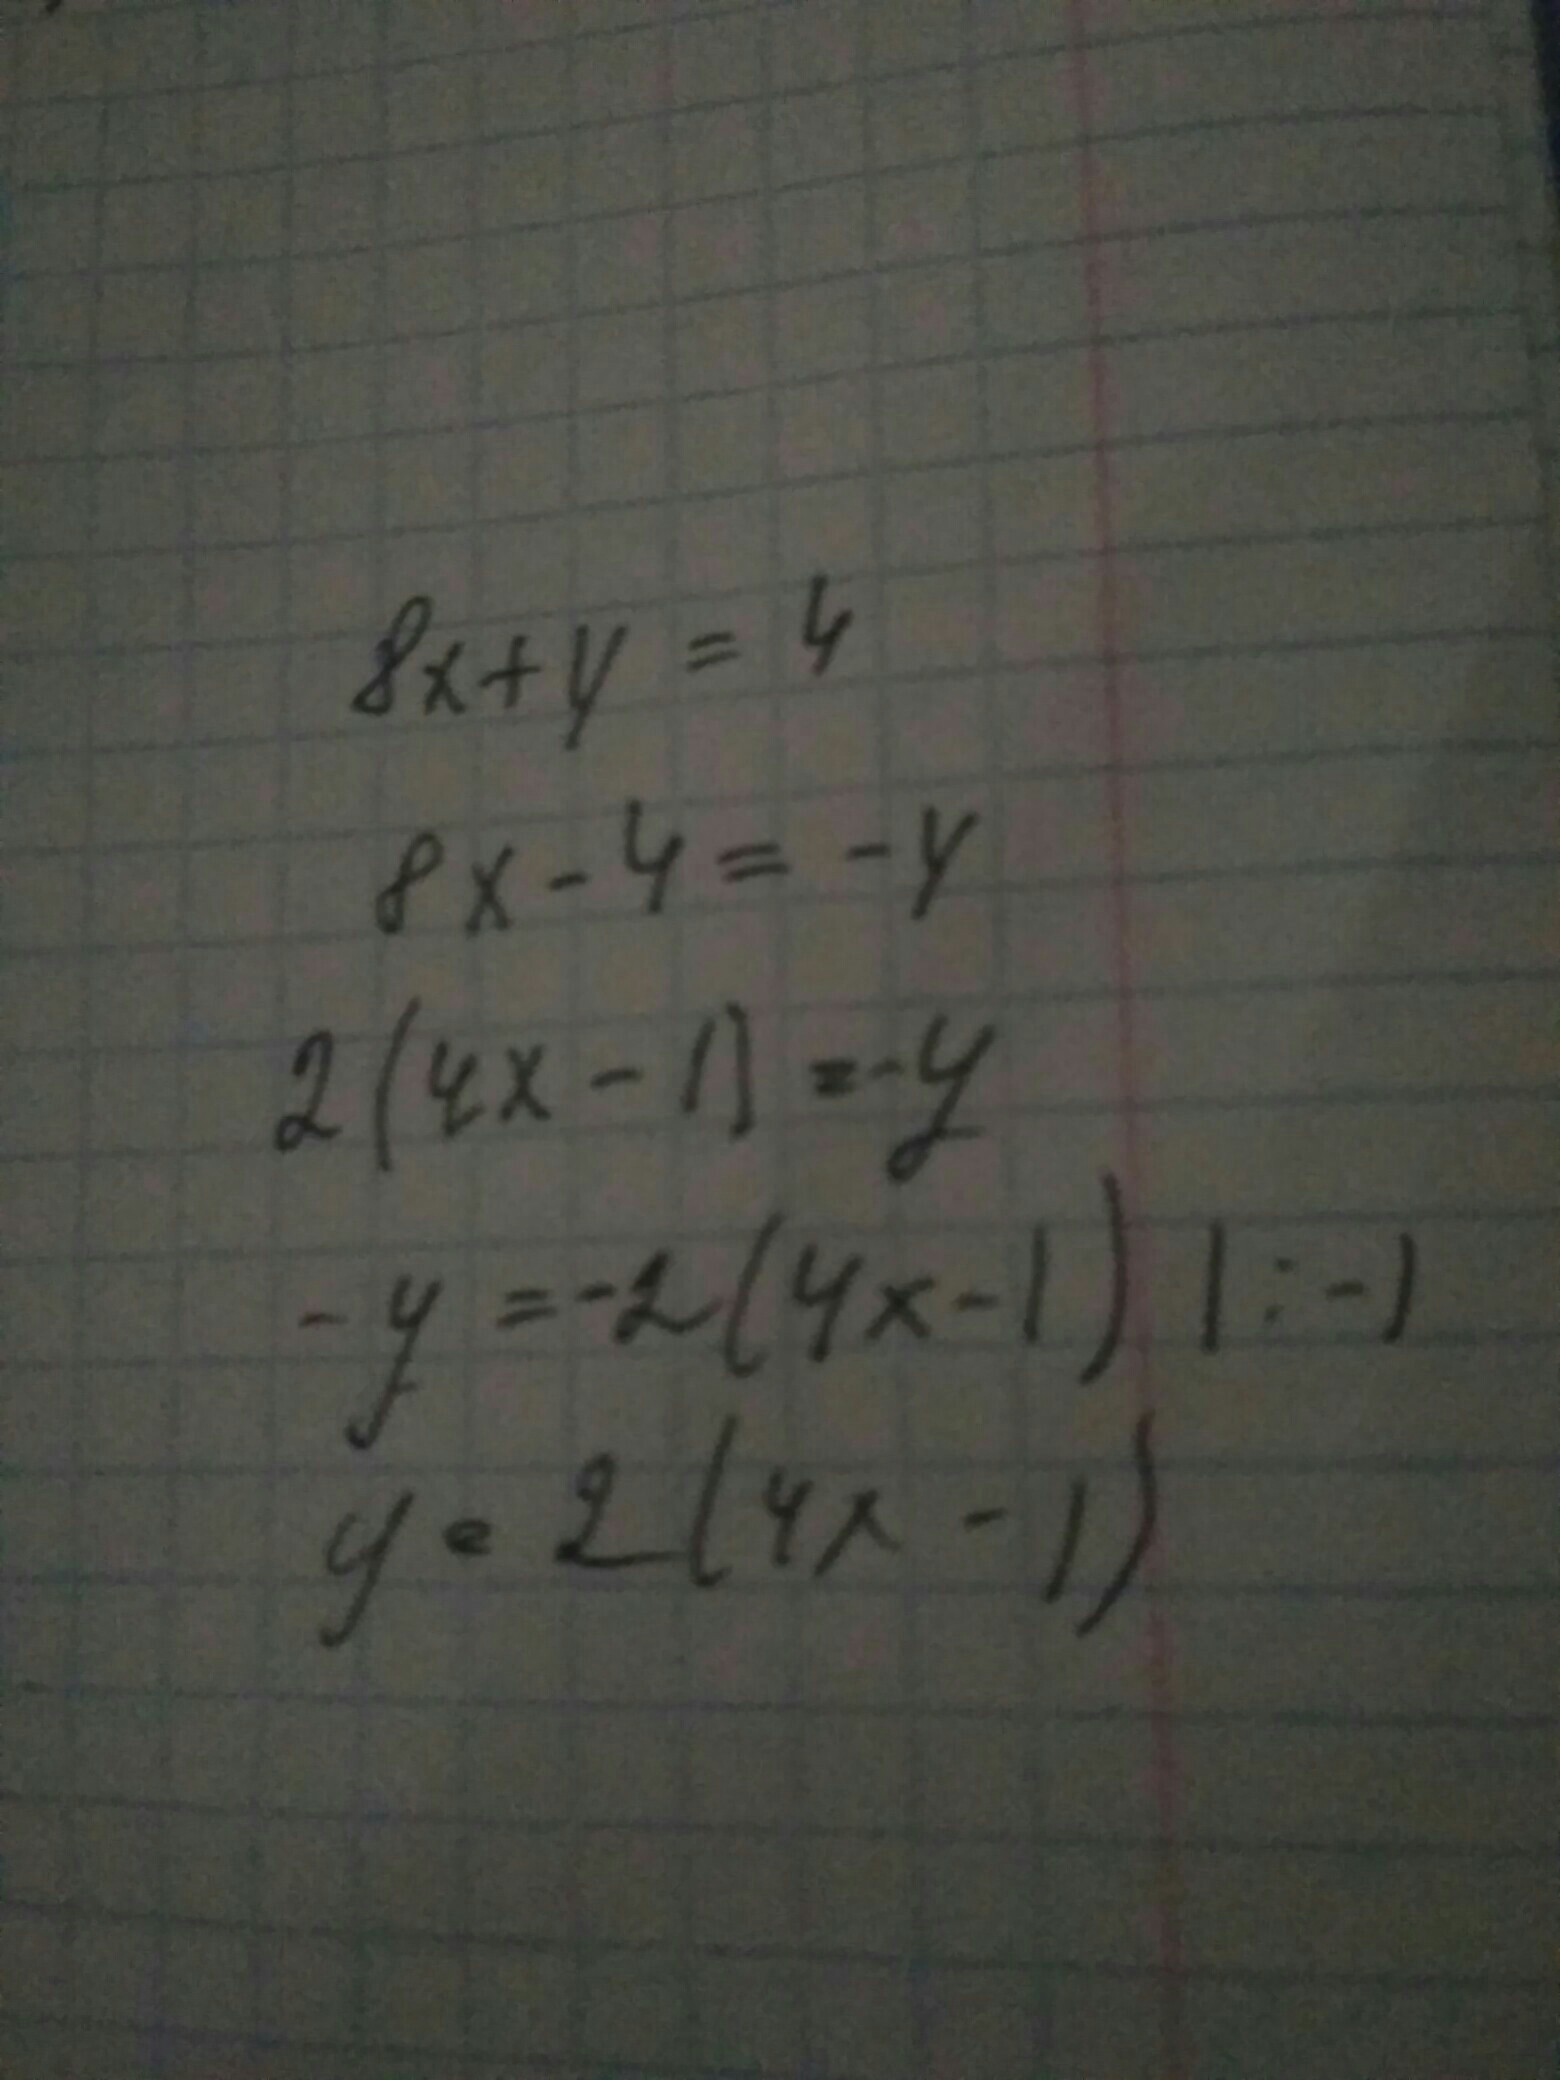 8x+y = 4
8x-4 = -y
2(4x-1) =-y
-y =-2(4x-1) |:-1
y = 2(4x-1)